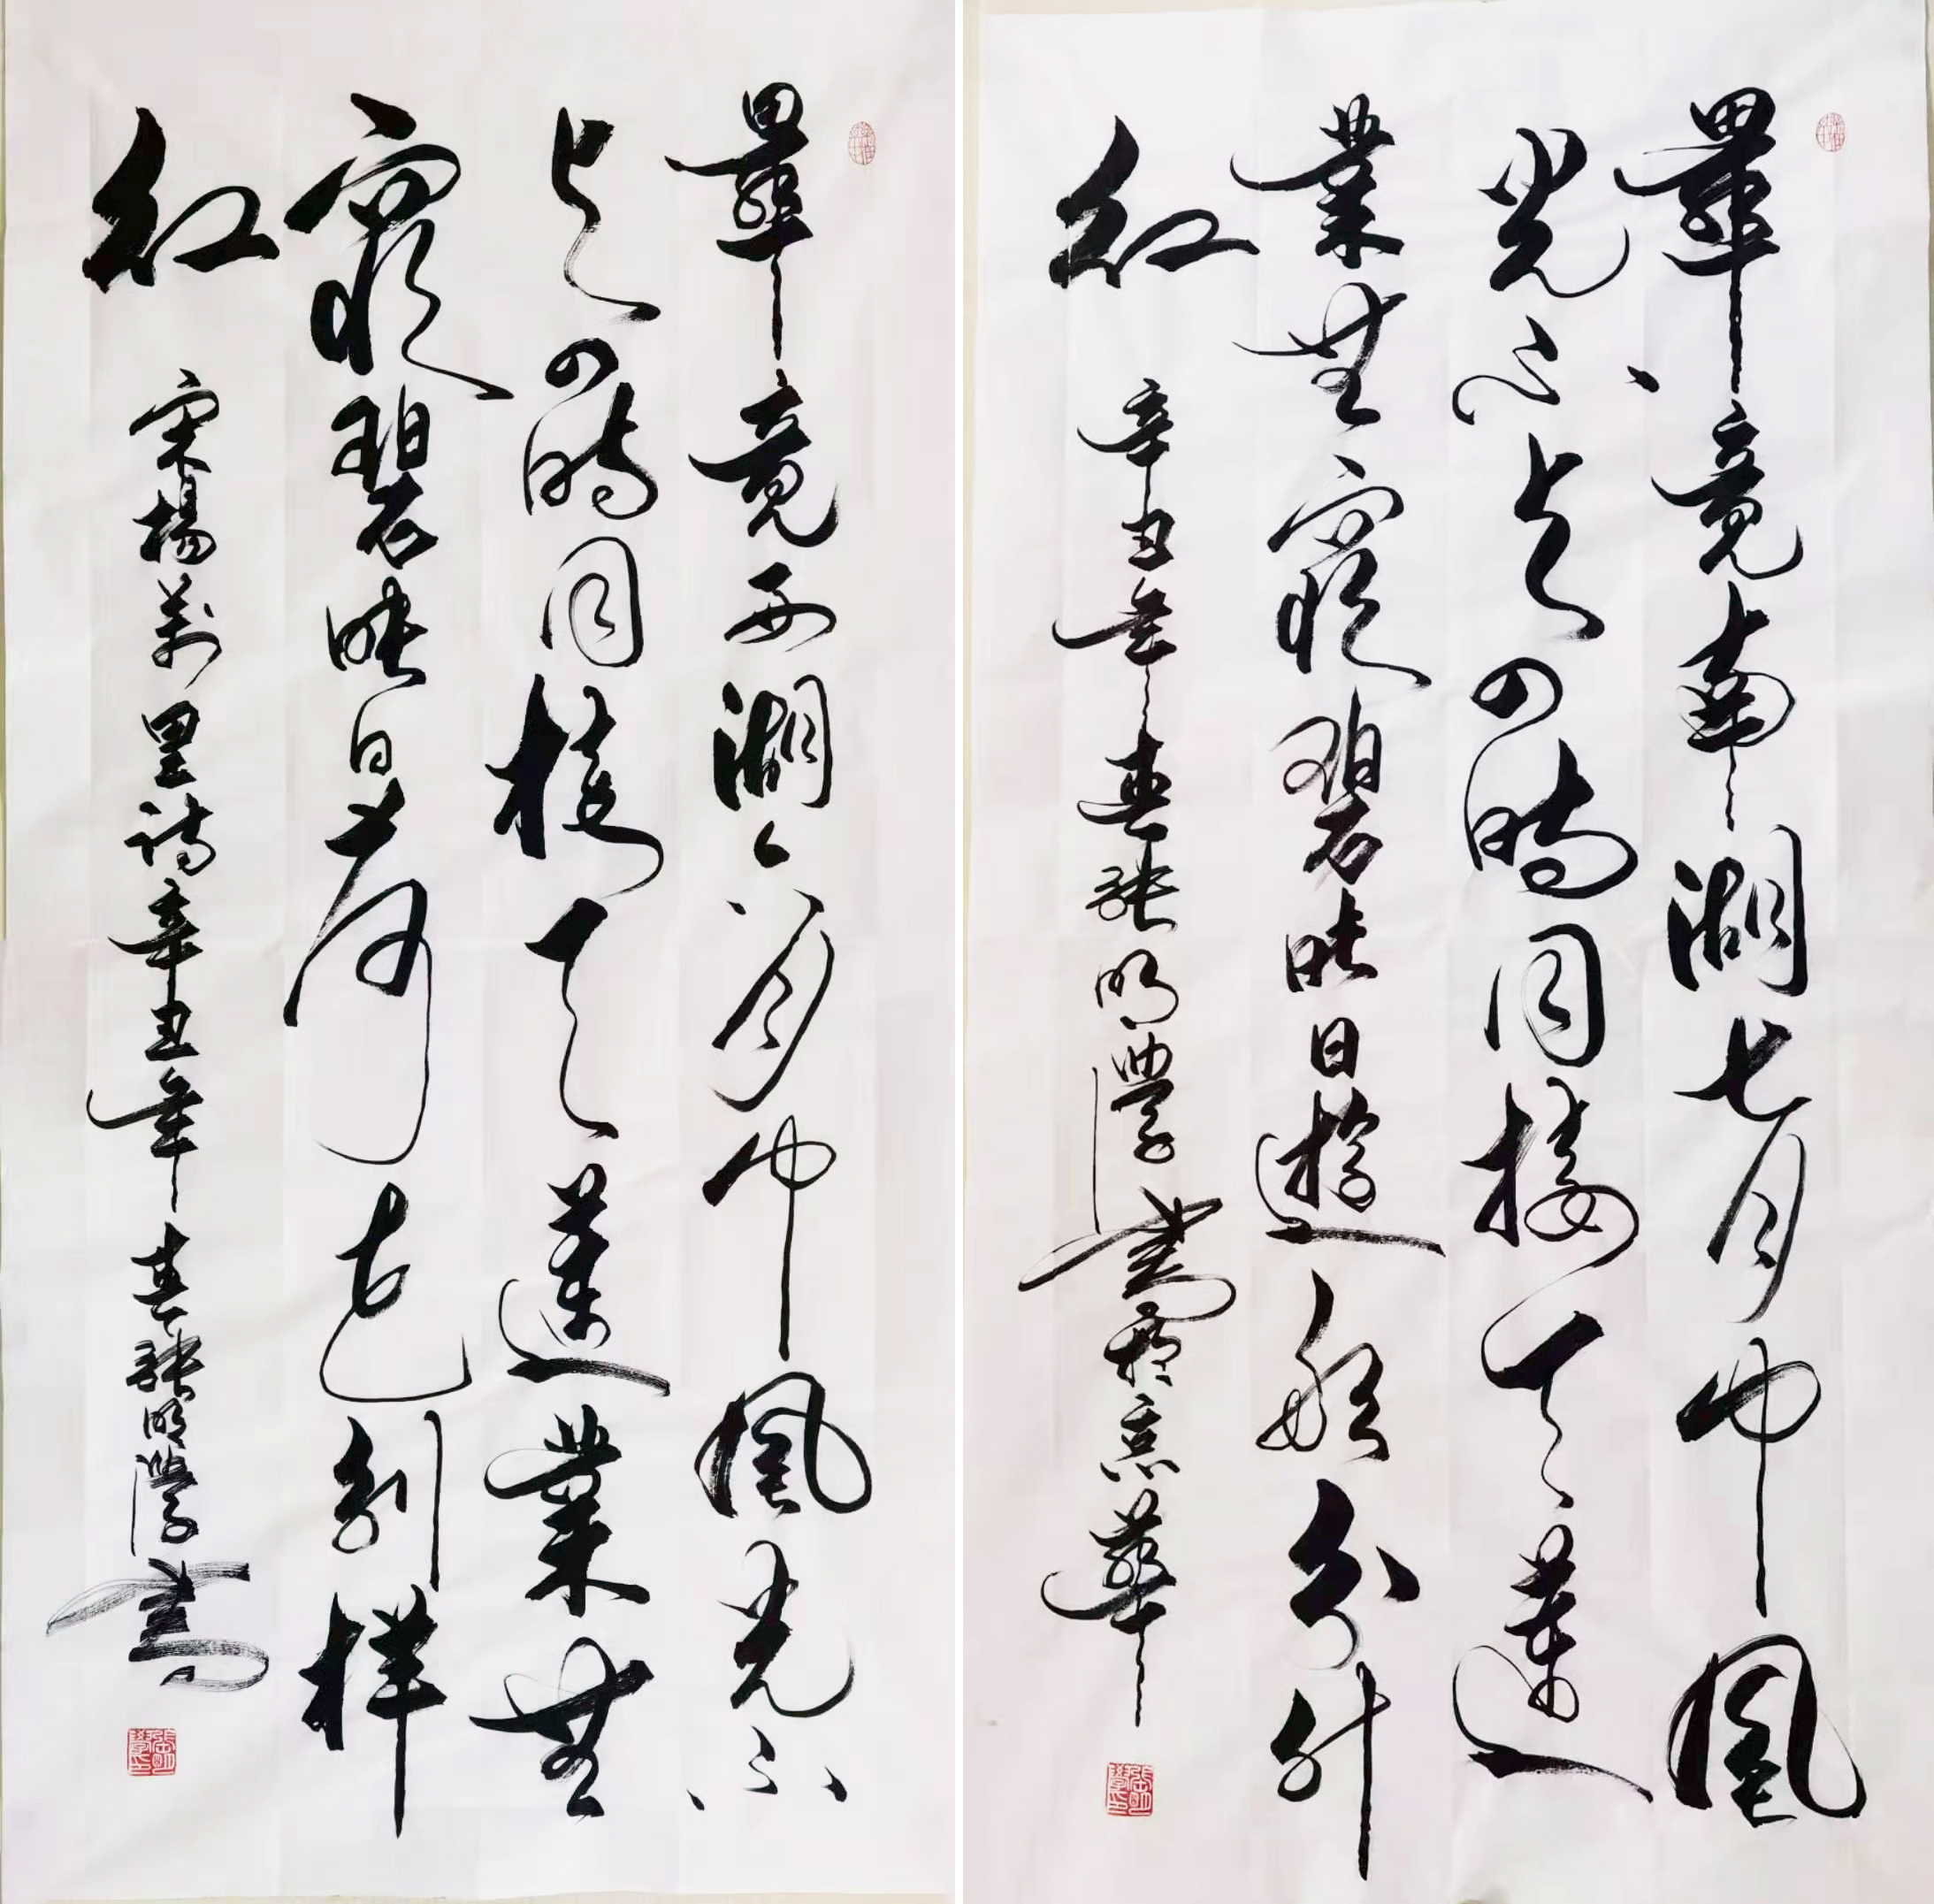 畢竟西湖六月中風光不
與四時同接天蓮葉無
窮碧映日荷花別樣
紅
宋楊萬里詩辛丑年春張明學書
張明學印
畢竟南湖七月中風
光不與四時同接天蓮
葉無窮碧映日遊船分外
紅
辛丑年春張明學書京華
張明學印